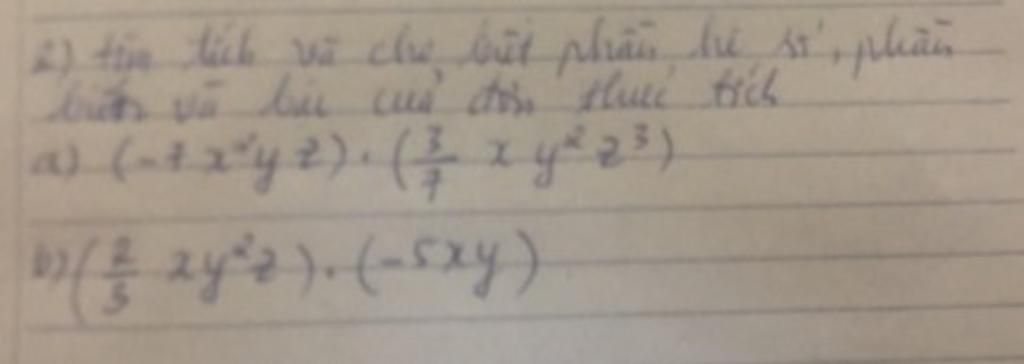 2) tìm tích và cho biết phần hệ số, phần
biến và bậc của đơn thức tích
a) (-7x²yz) . (3/7 xy²z³)
b) (2/5 xy²z) . (-5xy)